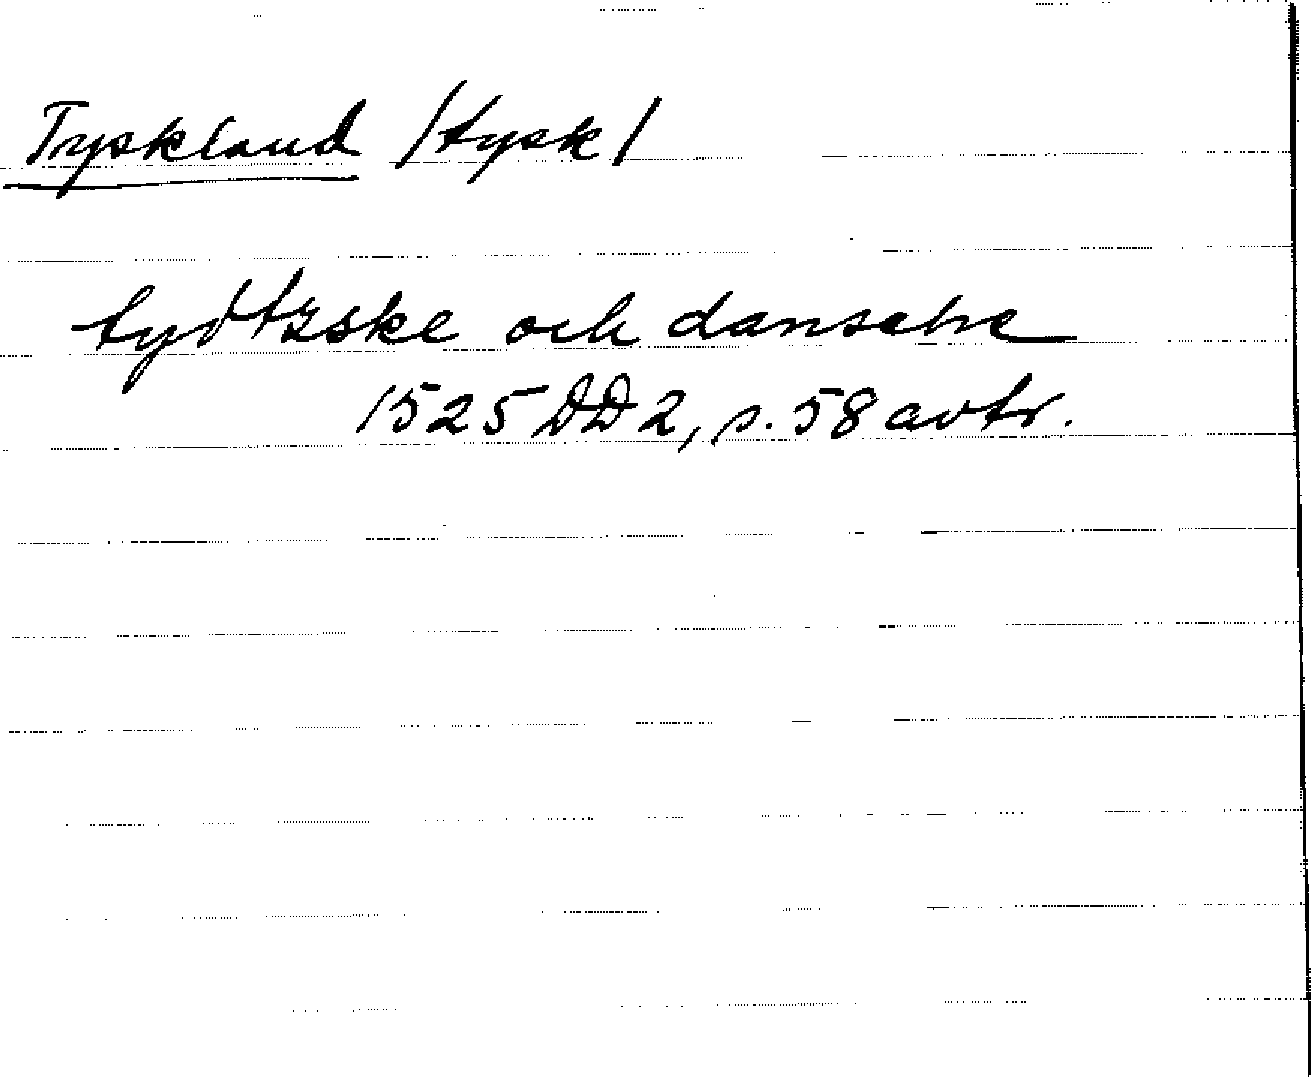 Tyskland /tysk/
tydtzske och danscke
1525 DD2, s. 58 avtr.